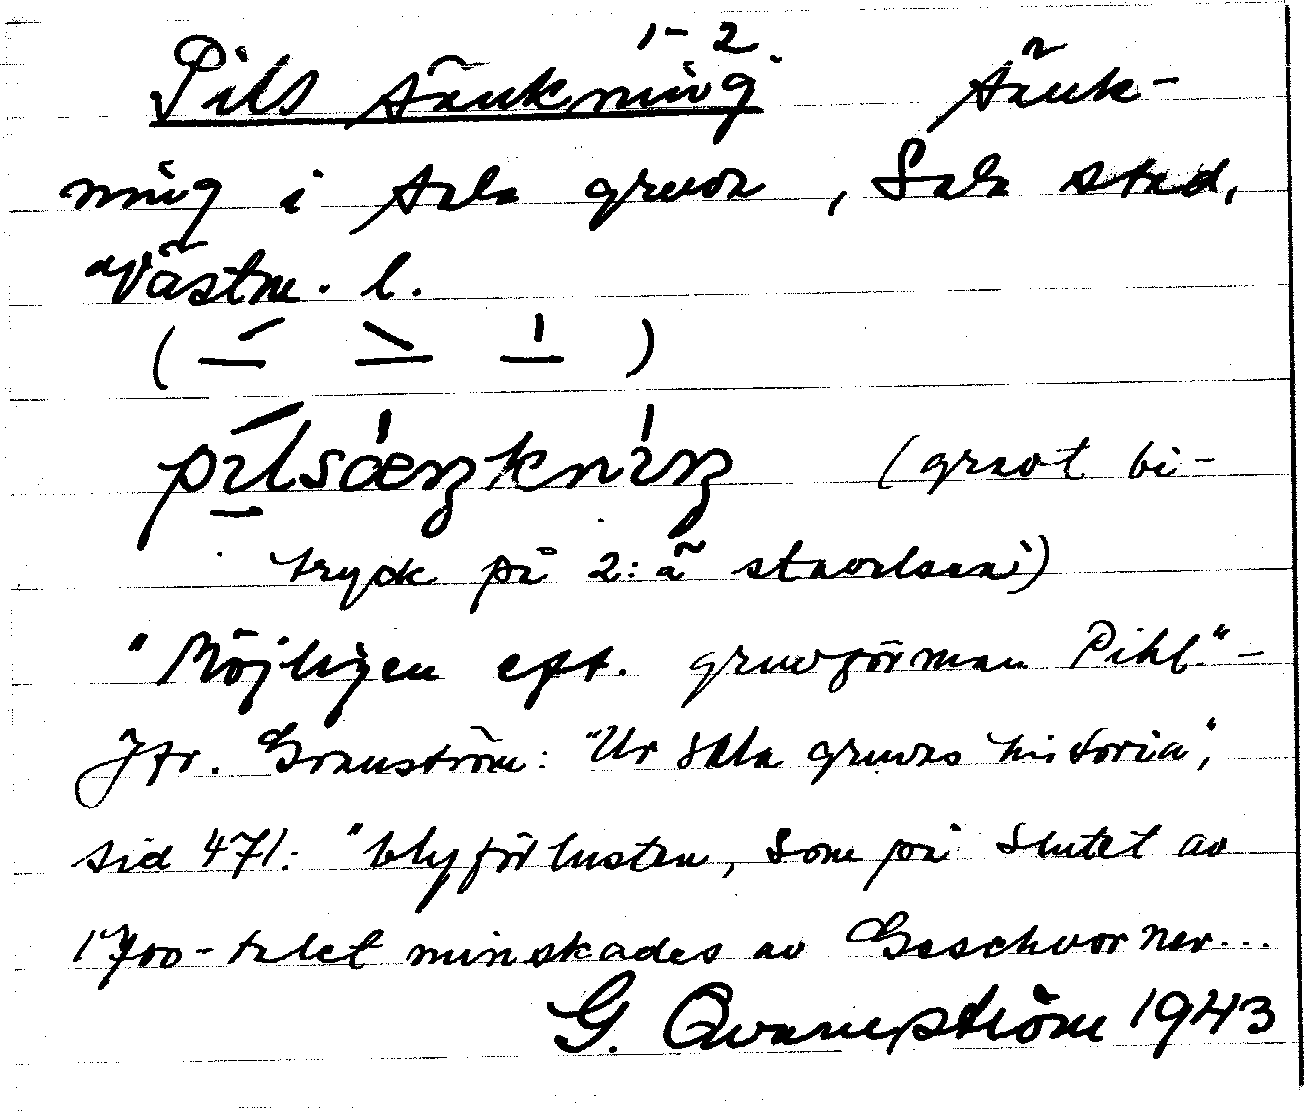 1-2.
Pils sänkning sänk-
ning i Sala gruva, Sala stad,
Västm. l.
pilsæŋkniŋ (gravt bi-
tryck på 2:a stavelsen)
"Möjligen eft. gruvförman Pihl." -
Jfr. Granström: "Ur Sala gruvas historia",
sid 471: "blyförlusten, som på slutet av
1700-talet minskades av Geschvorner...
G. Qvarnström 1943